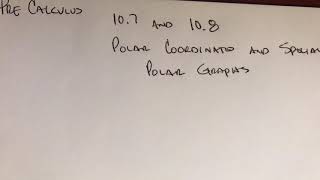 PRE CALCULUS
10.7 AND 10.8
POLAR COORDINATES AND SPECIAL
POLAR GRAPHS